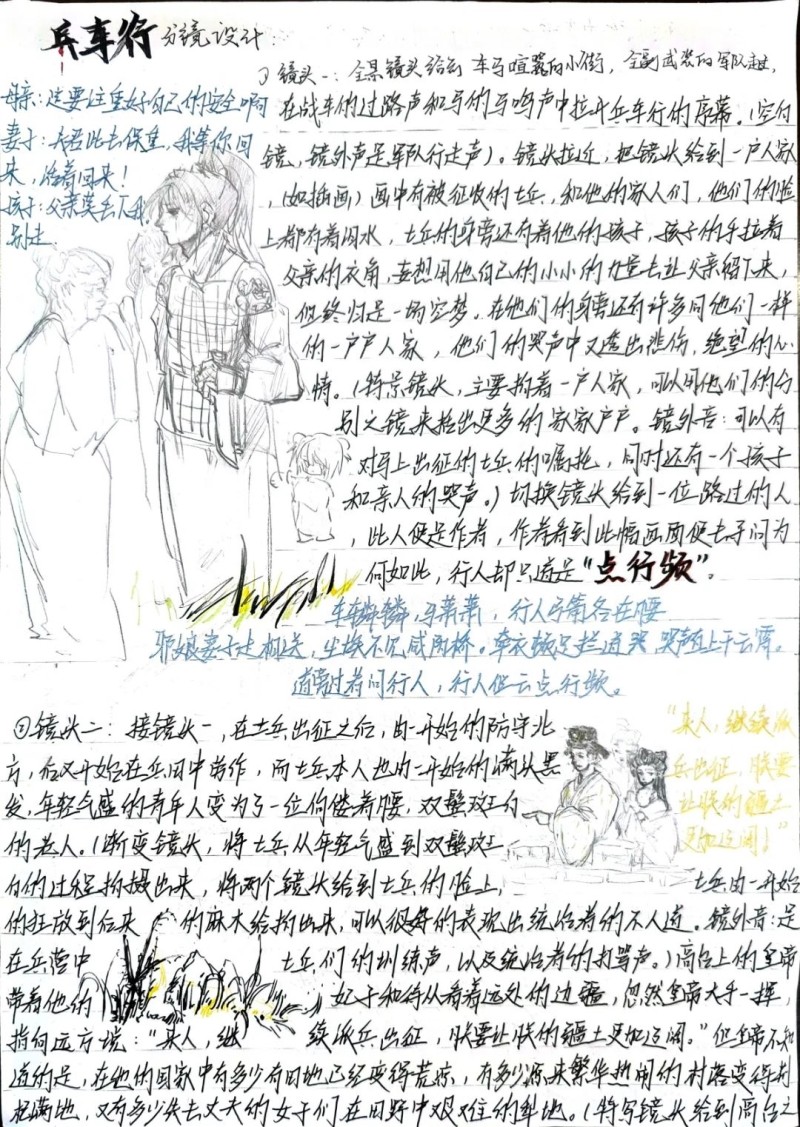 兵车行 分镜设计：
母亲：一定要注重好自己的安全啊
妻子：夫君此去保重，我等你回
来，活着回来！
孩子：父亲莫丢下我
别走
①镜头一：全景镜头给到 车马喧嚣的小街，全副武装的军队走过，
在战车的过路声和马的马鸣声中拉开兵车行的序幕。（空付
镜，镜外声是军队行走声）。镜头拉近，把镜头给到一户人家
，（如插画）画中有被征收的士兵，和他的家人们，他们的脸
上都有着泪水，士兵的身旁还有着他的孩子，孩子的手拉着
父亲的衣角，妄想用他自己的小小的力量去让父亲留下来，
但终归是一场空梦。在他们的身旁还有许多同他们一样
的一户户人家，他们的哭声中又透出悲伤，绝望的心
情。（特景镜头，主要拍着一户人家，可以用他们的分
别之镜来拍出更多的家家户户。镜外音：可以有
对马上出征的士兵的嘱托，同时还有一个孩子
和亲人的哭声。）切换镜头给到一位路过的人
，此人便是作者，作者看到此幅画面便去询问为
何如此，行人却只道是“点行频”。
车辚辚，马萧萧，行人弓箭各在腰
耶娘妻子走相送，尘埃不见咸阳桥。牵衣顿足拦道哭，哭声直上干云霄。
道旁过者问行人，行人但云点行频。
②镜头二：接镜头一，在士兵出征之后，由一开始的防守北
方，后又开始在兵田中劳作，而士兵本人也由一开始的满头黑
发，年轻气盛的青年人变为了一位佝偻着腰，双鬓斑白
的老人。（渐变镜头，将士兵从年轻气盛到双鬓斑
白的过程拍摄出来，将两个镜头给到士兵的脸上， 士兵由一开始
的狂放到后来 的麻木给拍出来，可以很好的表现出统治者的不人道。镜外音：是
在兵营中 士兵们的训练声，以及统治者的打骂声。）高台上的皇帝
带着他的 妃子和侍从看着远处的边疆，忽然皇帝大手一挥，
指向远方境：“来人，继 续派兵出征，朕要让朕的疆土更加辽阔。”但皇帝不知
道的是，在他的国家中有多少有田地已经变得荒凉，有多少原来繁华热闹的村落变得荆
杞满地，又有多少失去丈夫的女子们在田野中艰难的犁地。（特写镜头给到高台之
“来人，继续派
兵出征，朕要
让朕的疆土
更加辽阔！”